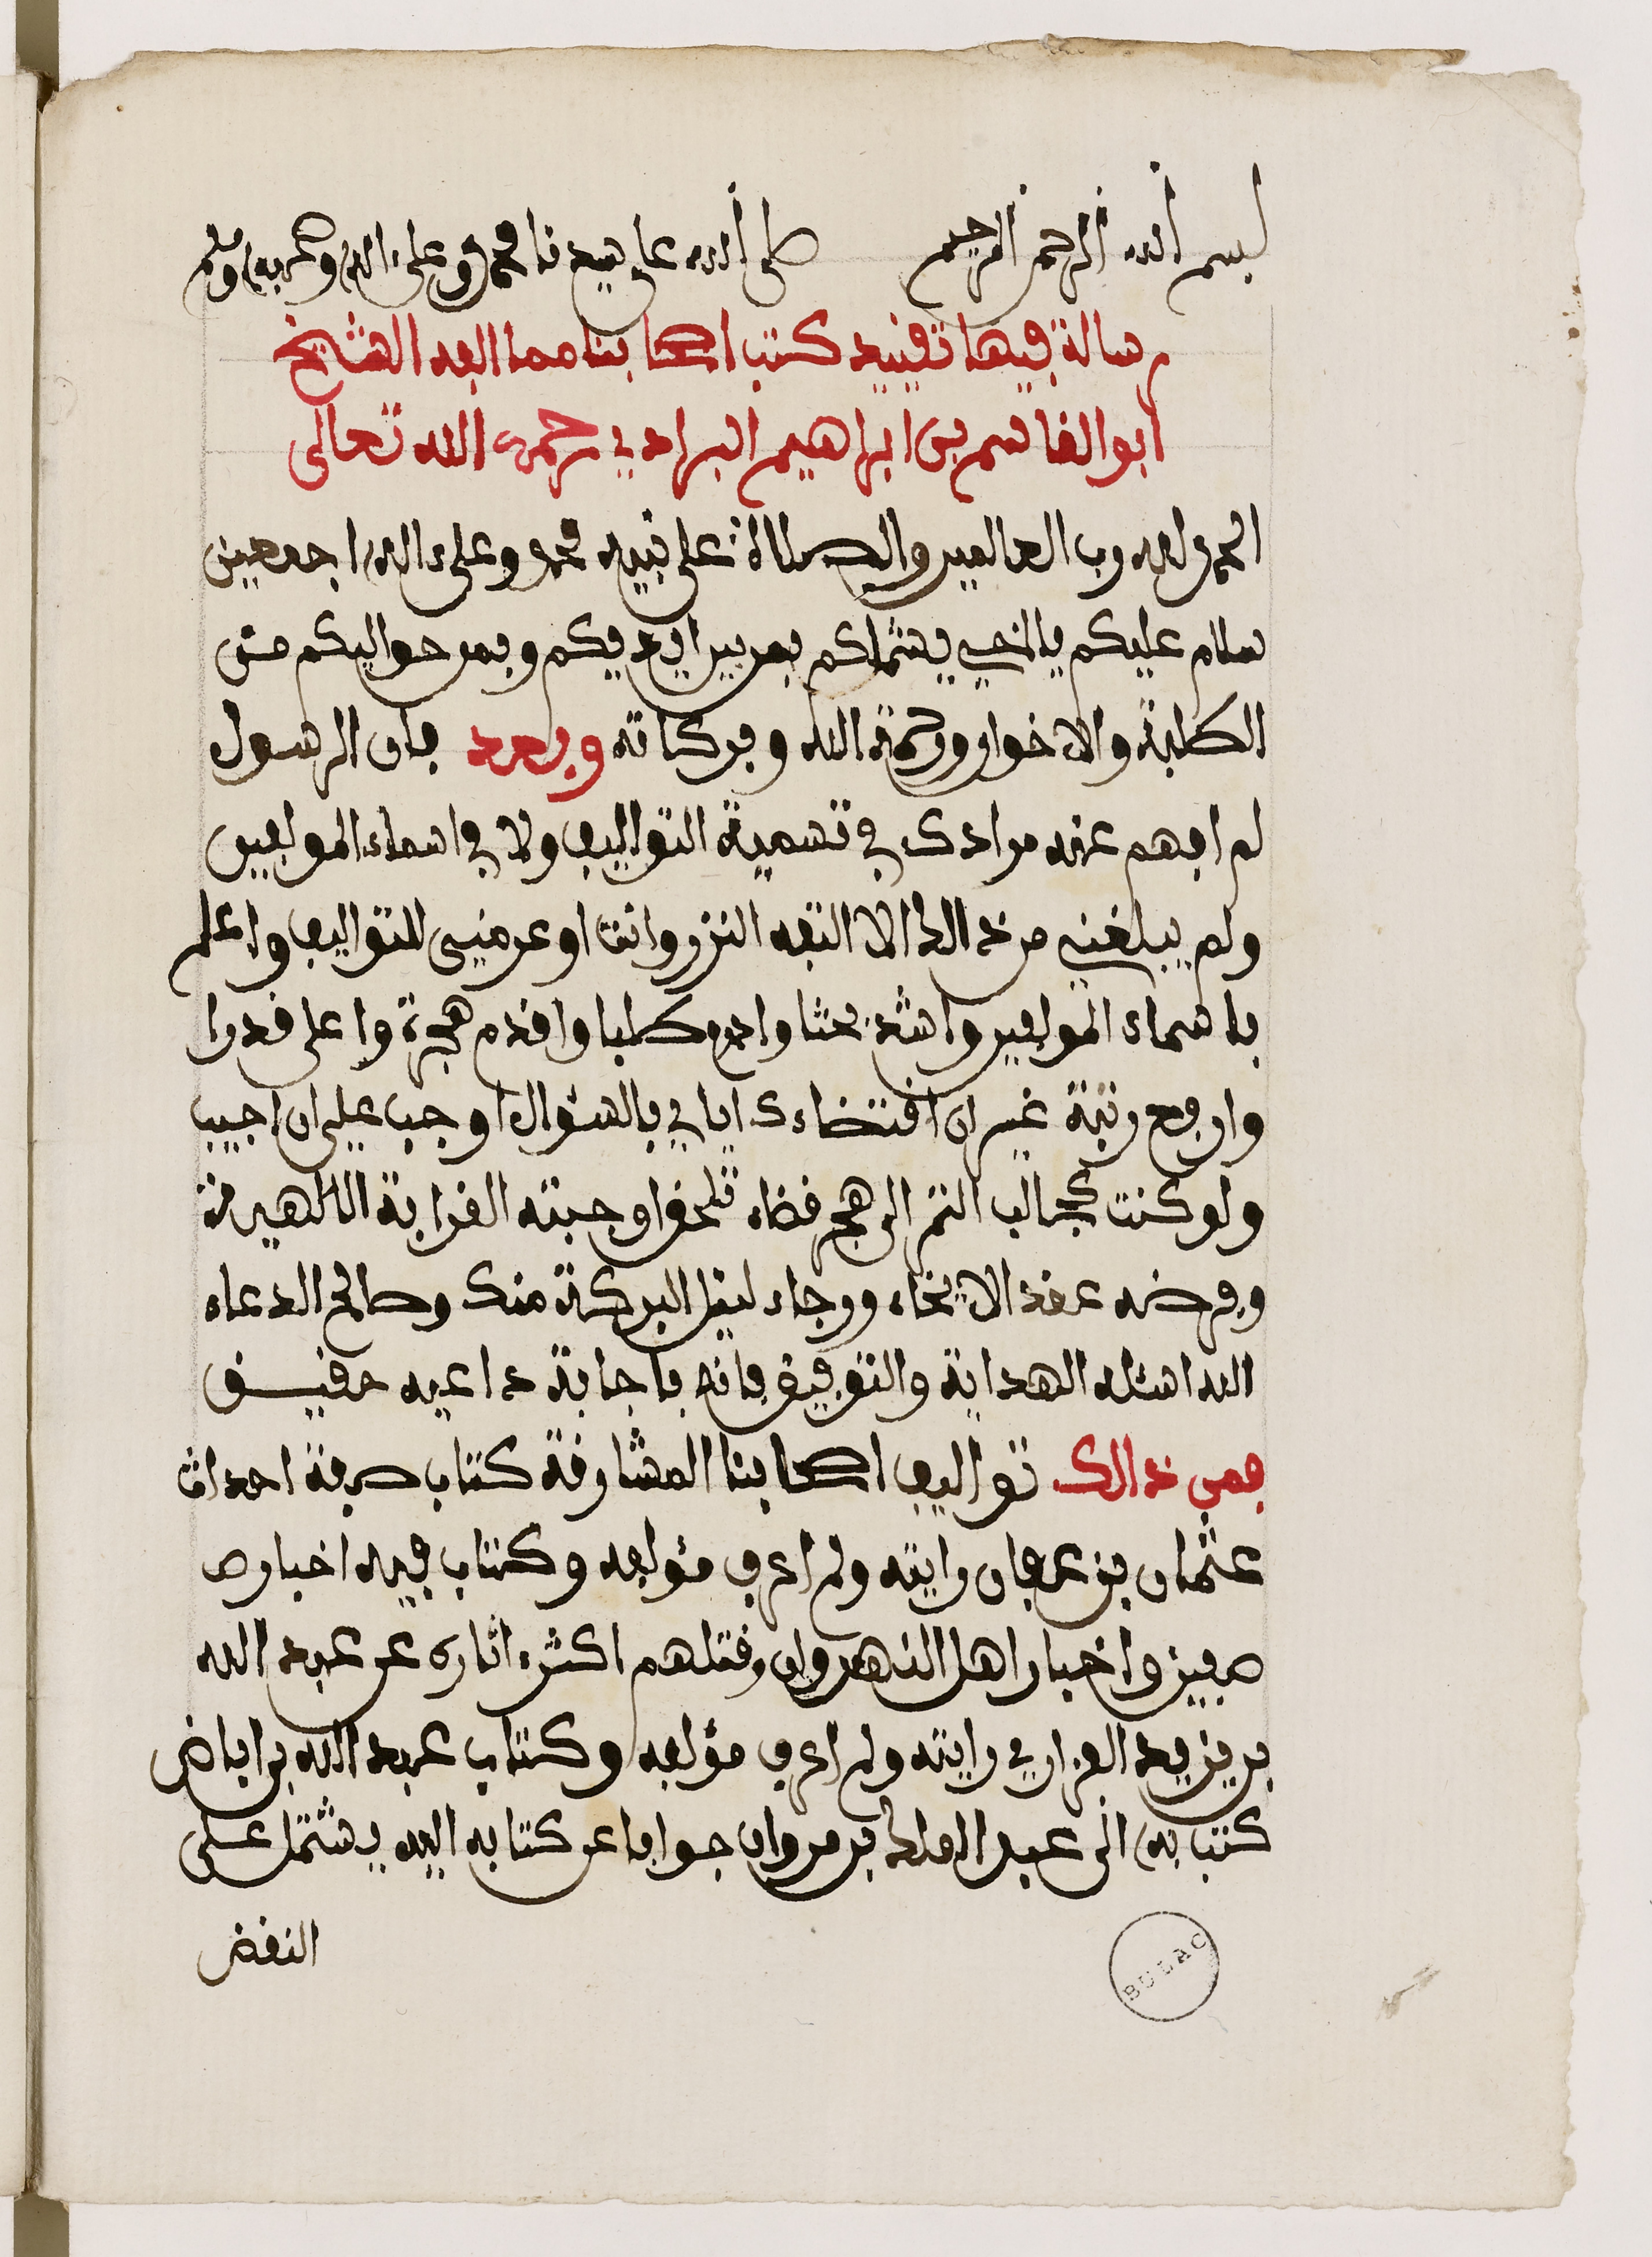 بسم الله الرحمن الرحيم صلى الله على سيدنا محمد وعلى ءاله وصحبه وسلم
رسالة فيها تقييد كتب اصحابنا مما الفه الشيخ
ابوالقاسم بن ابراهيم البرادي رحمه الله تعالى
الحمد لله رب العالمين والصلاة على نبيه محمد وعلى ءاله اجمعين
سلام عليكم يااخي يشملكم بمن بين ايديكم وبمن حواليكم من
الطلبة والاخوان ورحمة الله وبركاته وبعد فان الرسول
لم افهم عنه مرادك في تسمية التواليف ولا في اسماء المولفين
ولم يبلغني من ذالك الا التفه النزر وانت اوعى مني للتواليف واعلم
باسماء المولفين واشد بحثا وادوم طلبا واقدم هجرة واعلى قدرا
وارفع رتبة غير ان اقتضاءك اياي بالسؤال اوجب علي ان اجيب
ولو كنت كجالب التمر الى هجر قضاء لحق اوجبته القرابة الطاهرة
وفرضه عقد الايخاء ورجاء لنيل البركة منك وصالح الدعاء
الله اسئله الهداية والتوفيق فانه باجابة داعيه حقيق
فمن ذالك تواليف اصحابنا المشارقة كتاب صفة احداث
عثمان بن عفان رايته ولم اعرف مؤلفه وكتاب فيه اخبار ص
صفين واخبار اهل النهروان وقتلهم اكثر ءاثاره عن عبد الله
بن يزيد الفزاري رايته ولم اعرف مؤلفه وكتاب عبد الله بن اباض
كتب به الى عبد الملك بن مروان جوابا عن كتابه اليه يشتمل على
النقض
BULAC